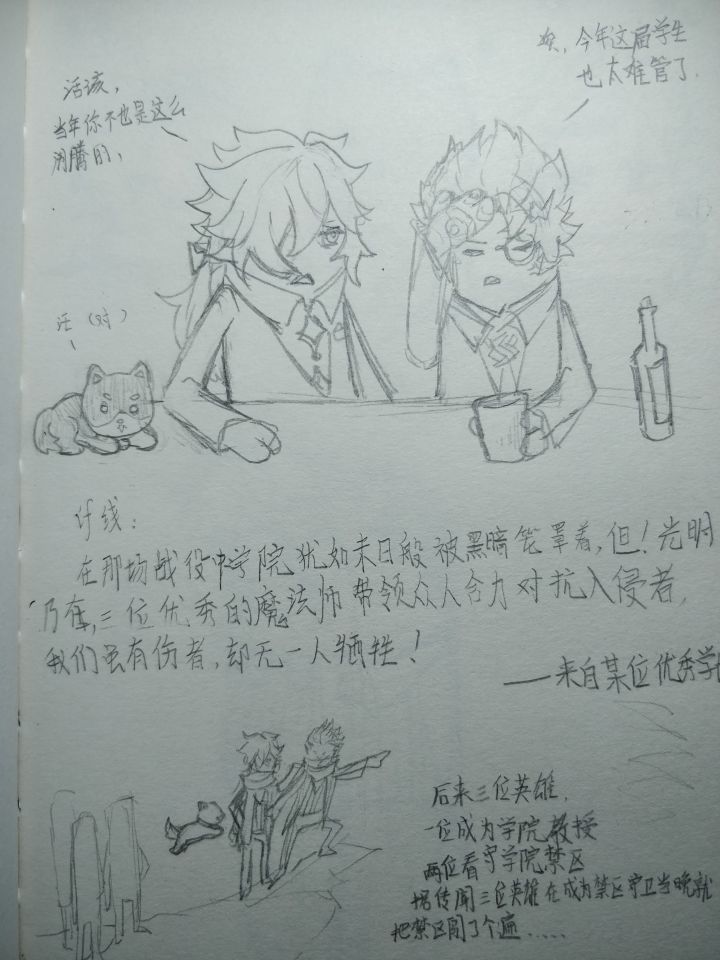 唉，今年这届学生
也太难管了.
活该，
当年你不也是这么
闹腾的，
汪（对）
伏线：
在那场战役中学院犹如末日般被黑暗笼罩着,但！光明
乃在,三位优秀的魔法师带领众人合力对抗入侵者，
我们虽有伤者,却无一人牺牲！
——来自某位优秀学
后来三位英雄，
一位成为学院教授
两位看守学院禁区
据传闻三位英雄在成为禁区守卫当晚就
把禁区闯了个遍……